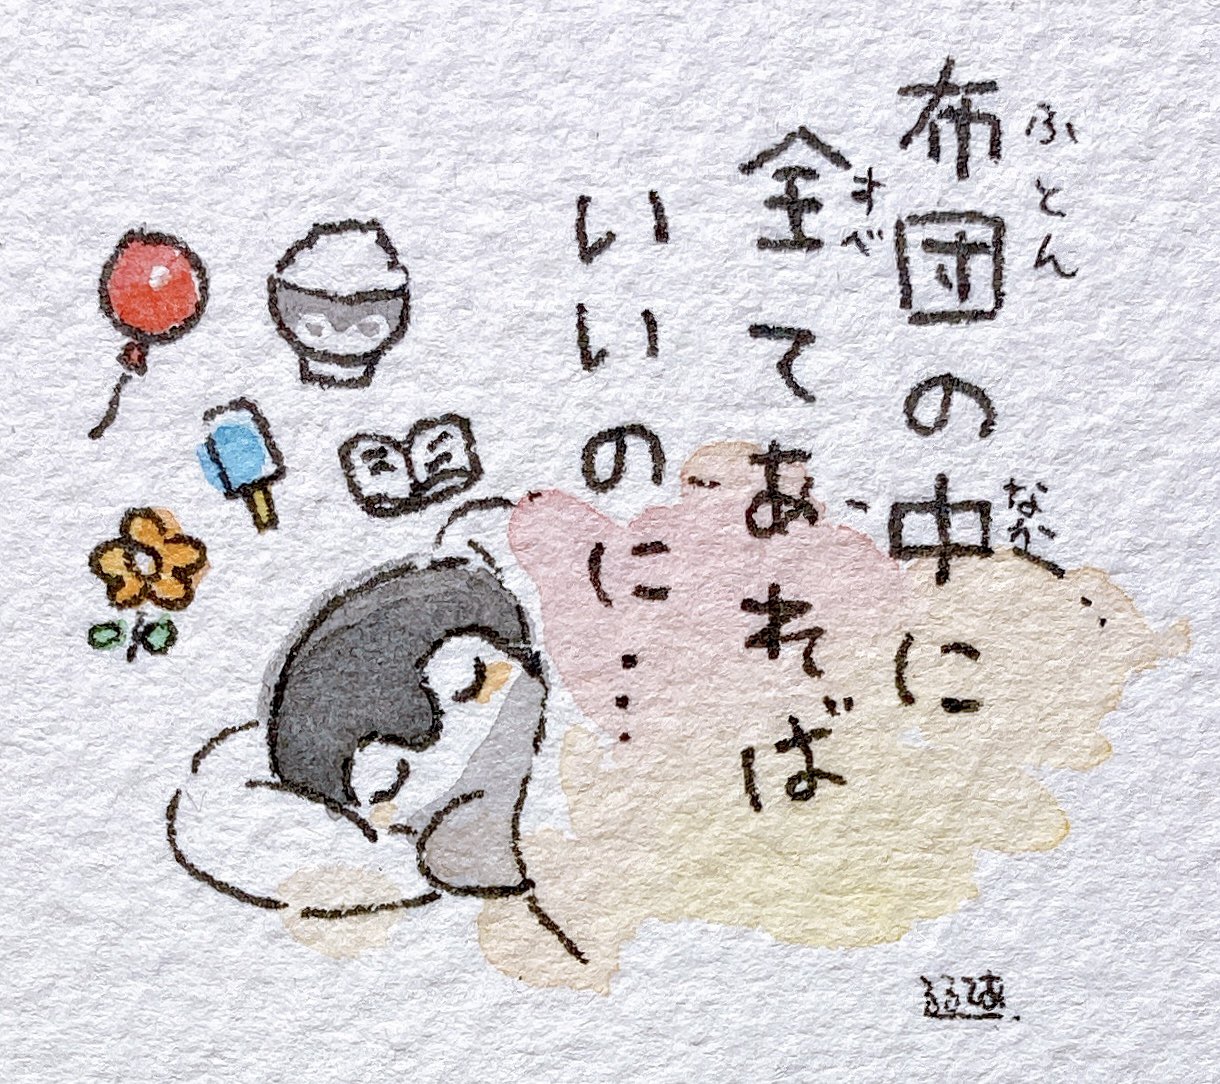 布団の中に
ふとん
なか
全てあれば
すべ
いいのに…
るるてあ